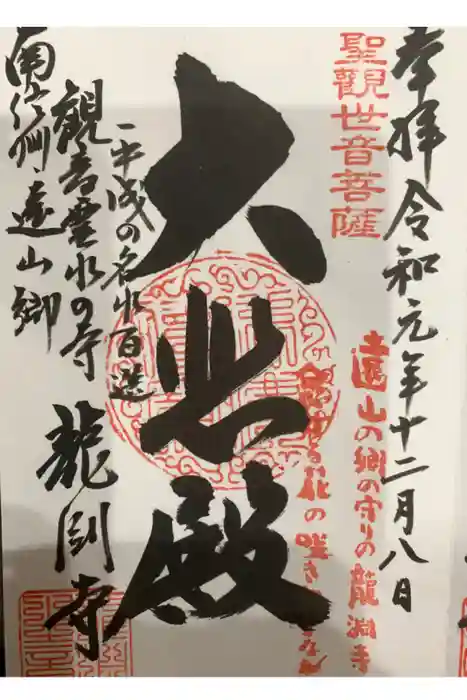 奉拝 令和元年十二月八日
聖觀世音菩薩
遠山の郷の守りの龍淵寺
花の咲き
大悲殿
平成の名水百選
観音霊水の寺 龍淵寺
南信州・遠山郷